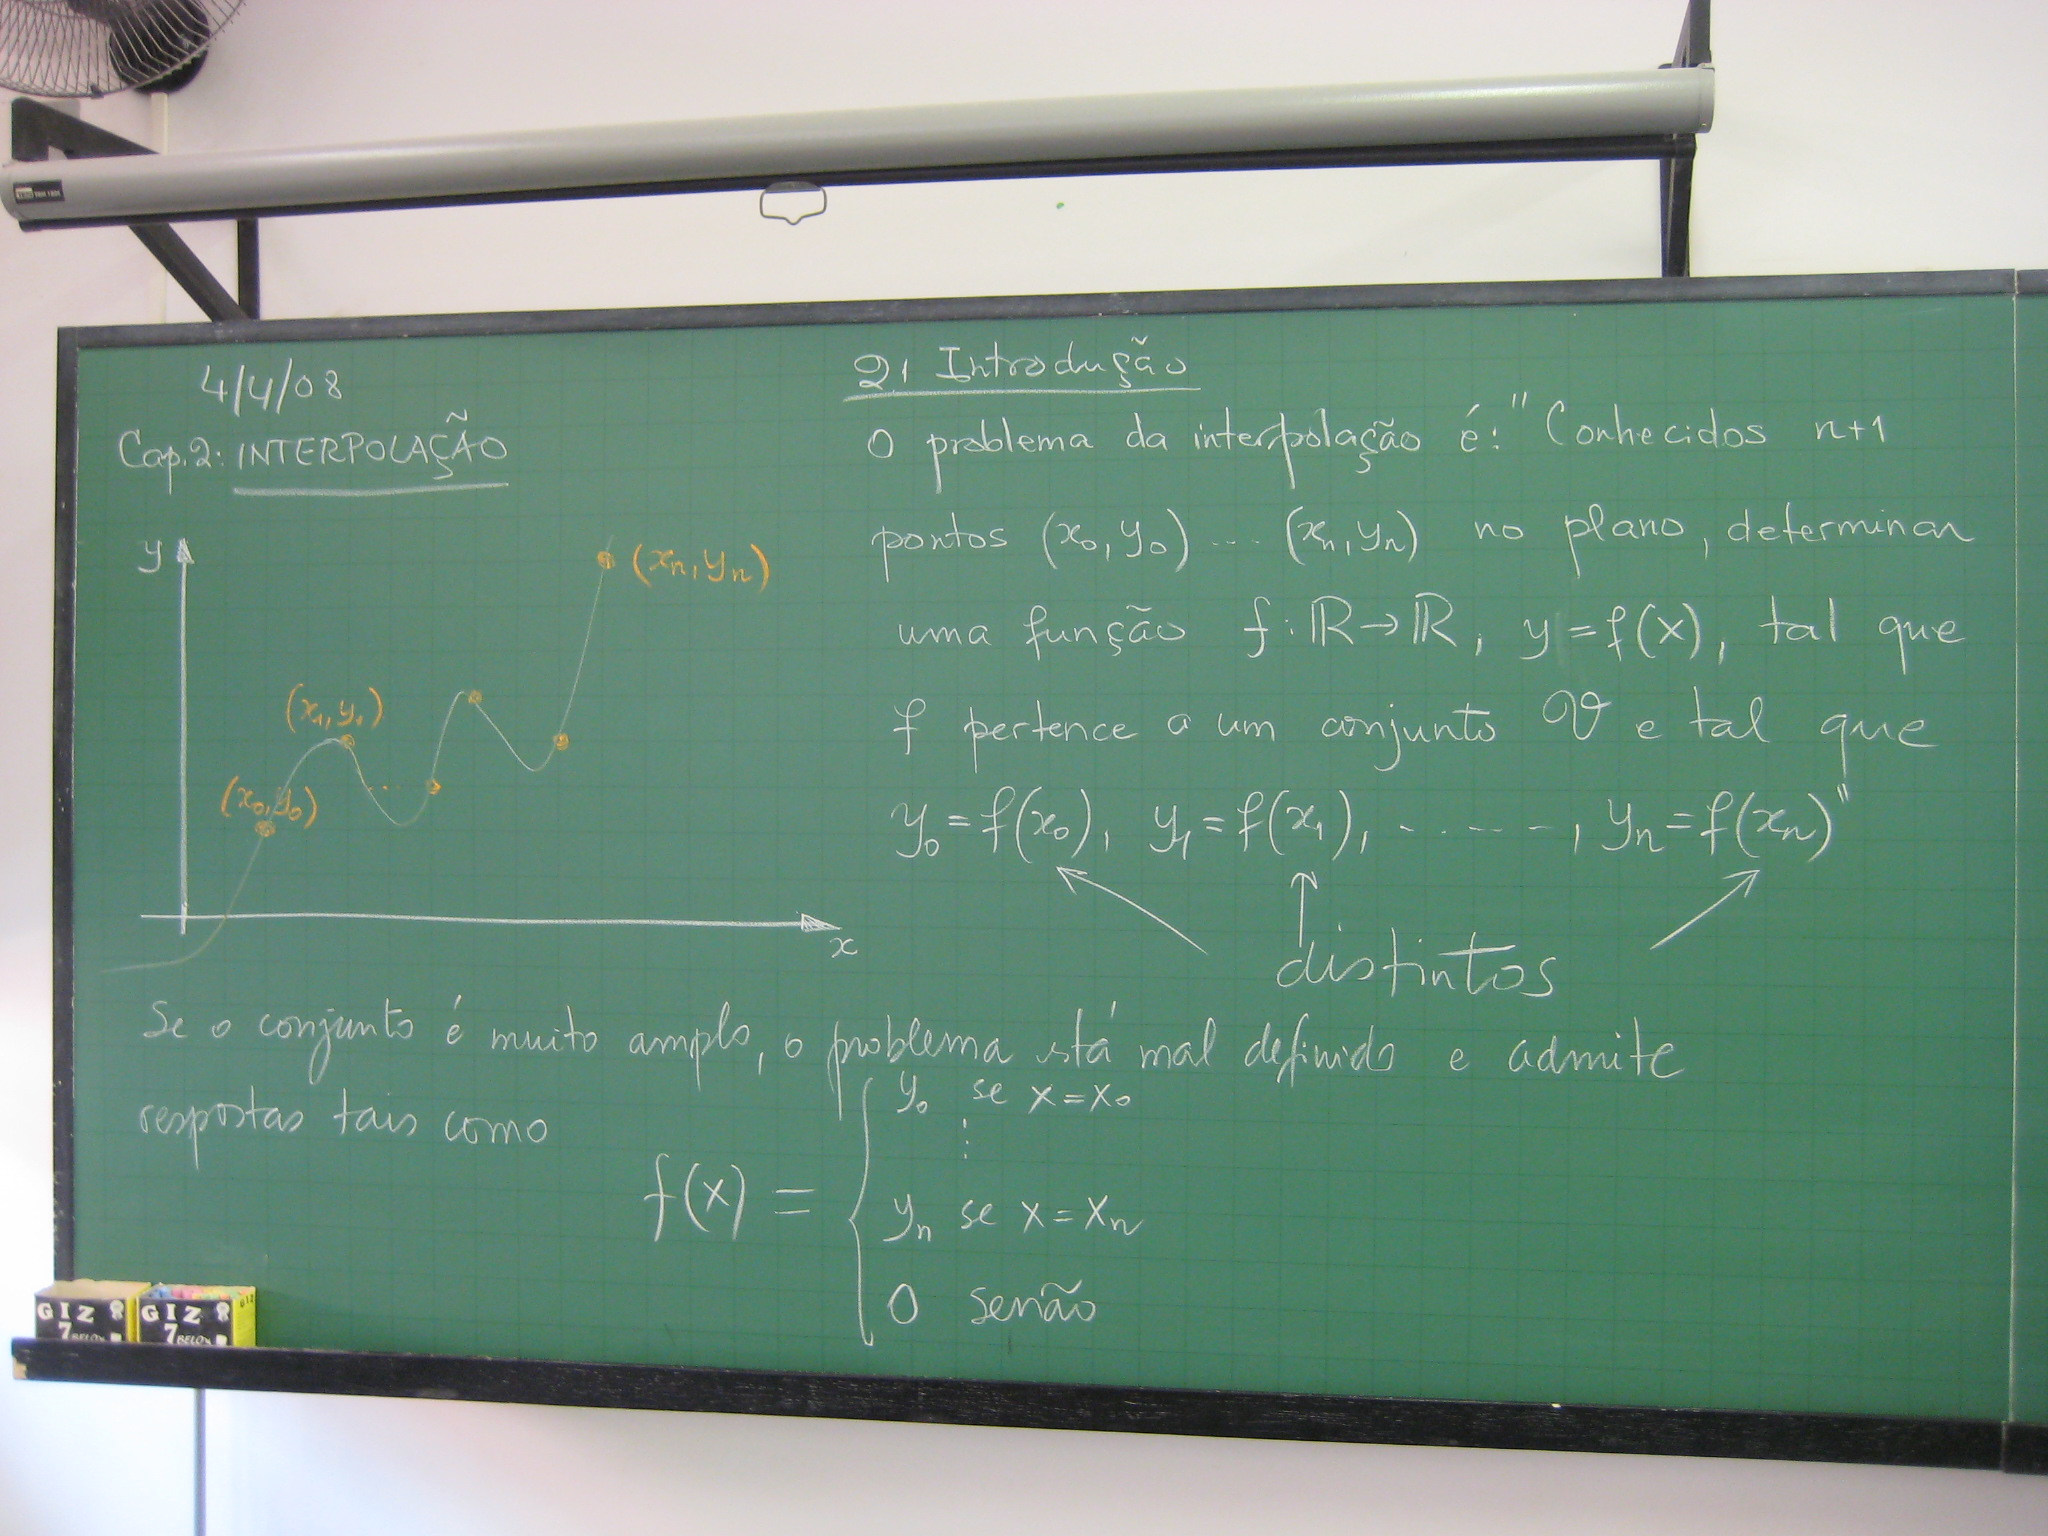 4/4/08
Cap.2: INTERPOLAÇÃO
y
(xn, yn)
(x1, y1)
(x0, y0)
...
x
2.1 Introdução
O problema da interpolação é: " Conhecidos n+1
pontos (x0, y0) ... (xn, yn) no plano, determinar
uma função f: ℝ→ℝ, y=f(x), tal que
f pertence a um conjunto V e tal que
y0=f(x0), y1=f(x1), ......, yn=f(xn)"
distintos
Se o conjunto é muito amplo, o problema está mal definido e admite
respostas tais como
f(x) = {
y0 se x=x0
⋮
yn se x=xn
0 senão
GIZ GIZ
7 BELO 7 BELO